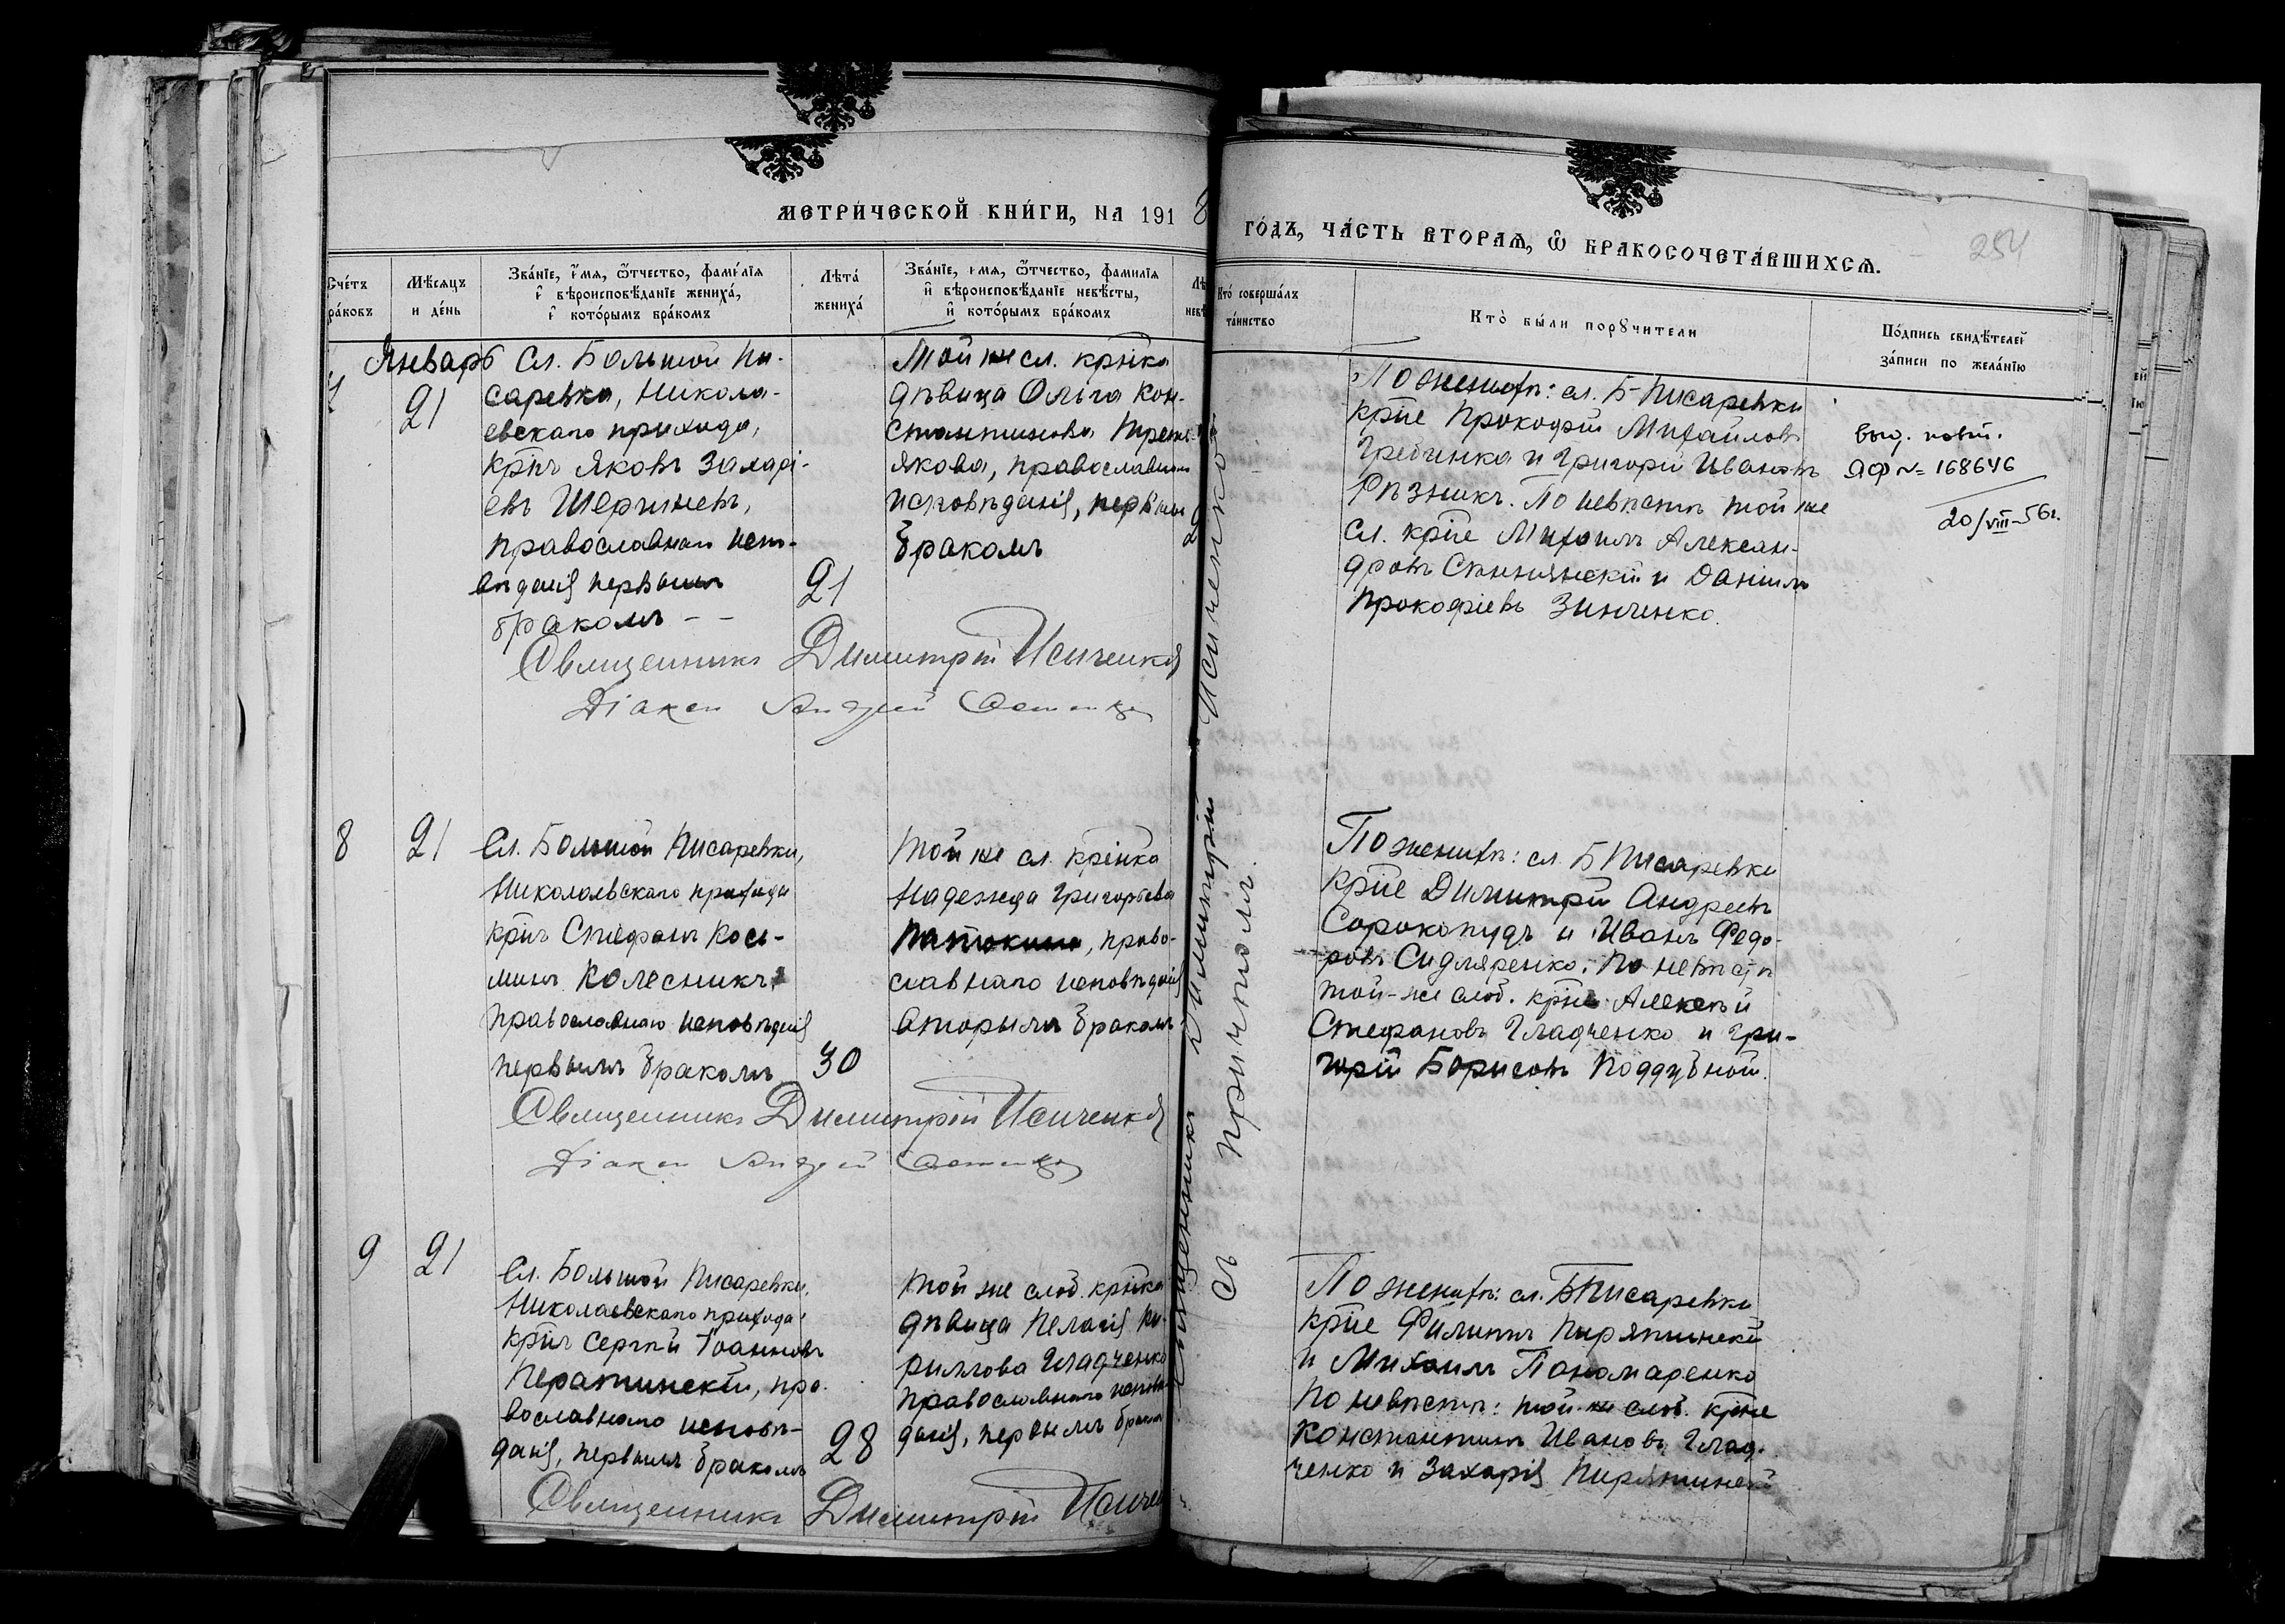 МЕТРИ́ЧЕСКОЙ КНИ́ГИ, НА 1918
ГО́ДЪ, ЧА́СТЬ ВТОРАѦ, Ѡ҆ БРАКОСОЧЕТА́ВШИХСѦ.
254
Сче́тъ
бра́ковъ
Мѣ́сяцъ
и де́нь
Зва́нїе, и҆́мя, ѻ҆́тчество, фами́лїя
и҆ вѣроисповѣ́данїе жениха́,
и҆ кото́рымъ бра́комъ
Лѣ́та
жениха́
Зва́нїе, и́мя, ѻ҆́тчество, фамилїя
и҆ вѣроисповѣ́данїе невѣ́сты,
и҆ кото́рымъ бра́комъ
Кто́ соверша́лъ
та́инство
Кто̀ бы́ли порꙋчители
По́дпись свидѣ́телей
за́писи по жела́нїю
Январь
21
Сл. Большой Пи-
саревки, Никола-
евскаго прихода,
крн҃ъ Яковъ Захарі-
евъ Шерчневъ,
православнаго испо-
вѣданія первымъ
бракомъ - -
21
Той же сл. кр҃нка
дѣвица Ольга Кон-
стантинова Треть-
якова, православнаго
исповѣданія, первымъ
бракомъ
По женихѣ: сл. Б-Писаревки
кр҃не Прокофій Михайловъ
Гребинка и Григорій Ивановъ
Рѣзникъ. По невѣстѣ той же
сл. кр҃не Михаилъ Алексан-
дровъ и Даніилъ
Прокофіевъ Зинченко.
выд. повт.
ЯФ № 168646
20/VIII-56г.
Священникъ Димитрій Исиченко
Діакон Андрей
8
21
Сл. Большой Писаревки,
Николаевскаго прихода
крн҃ъ Стефанъ Кось-
минъ Колесникъ,
православнаго исповѣданія
первымъ бракомъ
30
Той же сл. кр҃нка
Надежда Григорьева
право-
славнаго исповѣданія
вторымъ бракомъ
По женихѣ: сл. Б Писаревки
кр҃не Димитрій Андреевъ
Сорокопудъ и Иванъ Федо-
ровъ Сидляренко. По невѣстѣ
той-же слоб. кр҃не Алексѣй
Стефановъ Гладченко и Гри-
горій Борисовъ Поддубной.
Священникъ Димитрій Исиченко
Діакон Андрей
9
21
Сл. Большой Писаревки,
Николаевскаго прихода,
крн҃ъ Сергѣй Іоанновъ
Ператинскій, пра-
вославнаго исповѣ-
данія, первымъ бракомъ
28
Той же слоб. кр҃нка
дѣвица Пелагія Ки-
риллова Гладченко
православнаго исповѣ-
данія, первымъ бракомъ
По женихѣ: сл. Б Писаревки
кр҃не Филиппъ Пирятинскій
и Михаилъ Пономаренко
По невѣстѣ: той-же слоб. кр҃не
Константинъ Ивановъ Глад-
ченко и Захарія Пирятинскій
Священникъ Димитрій Исиченко
Священникъ Димитрій Исиченко
съ причтомъ.